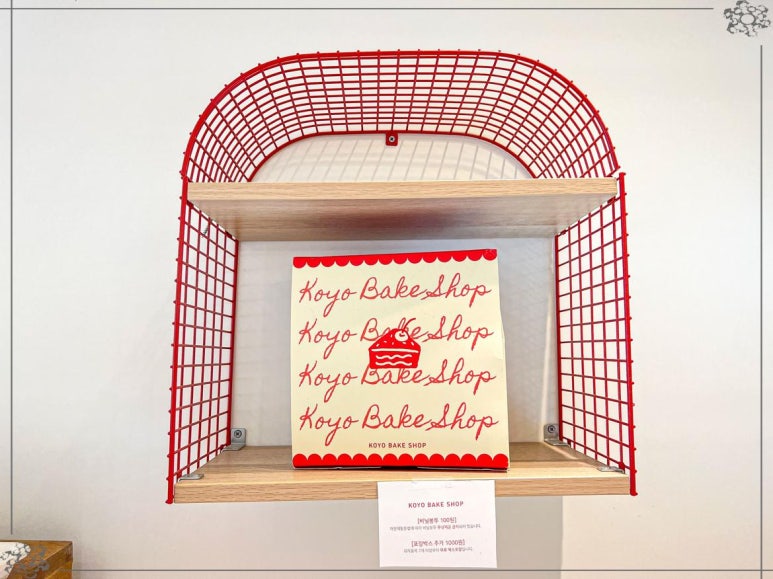 Koyo Bake Shop
Koyo Bake Shop
Koyo Bake Shop
Koyo Bake Shop
KOYO BAKE SHOP
KOYO BAKE SHOP
[비닐봉투 100원]
[포장박스 추가 1000원]